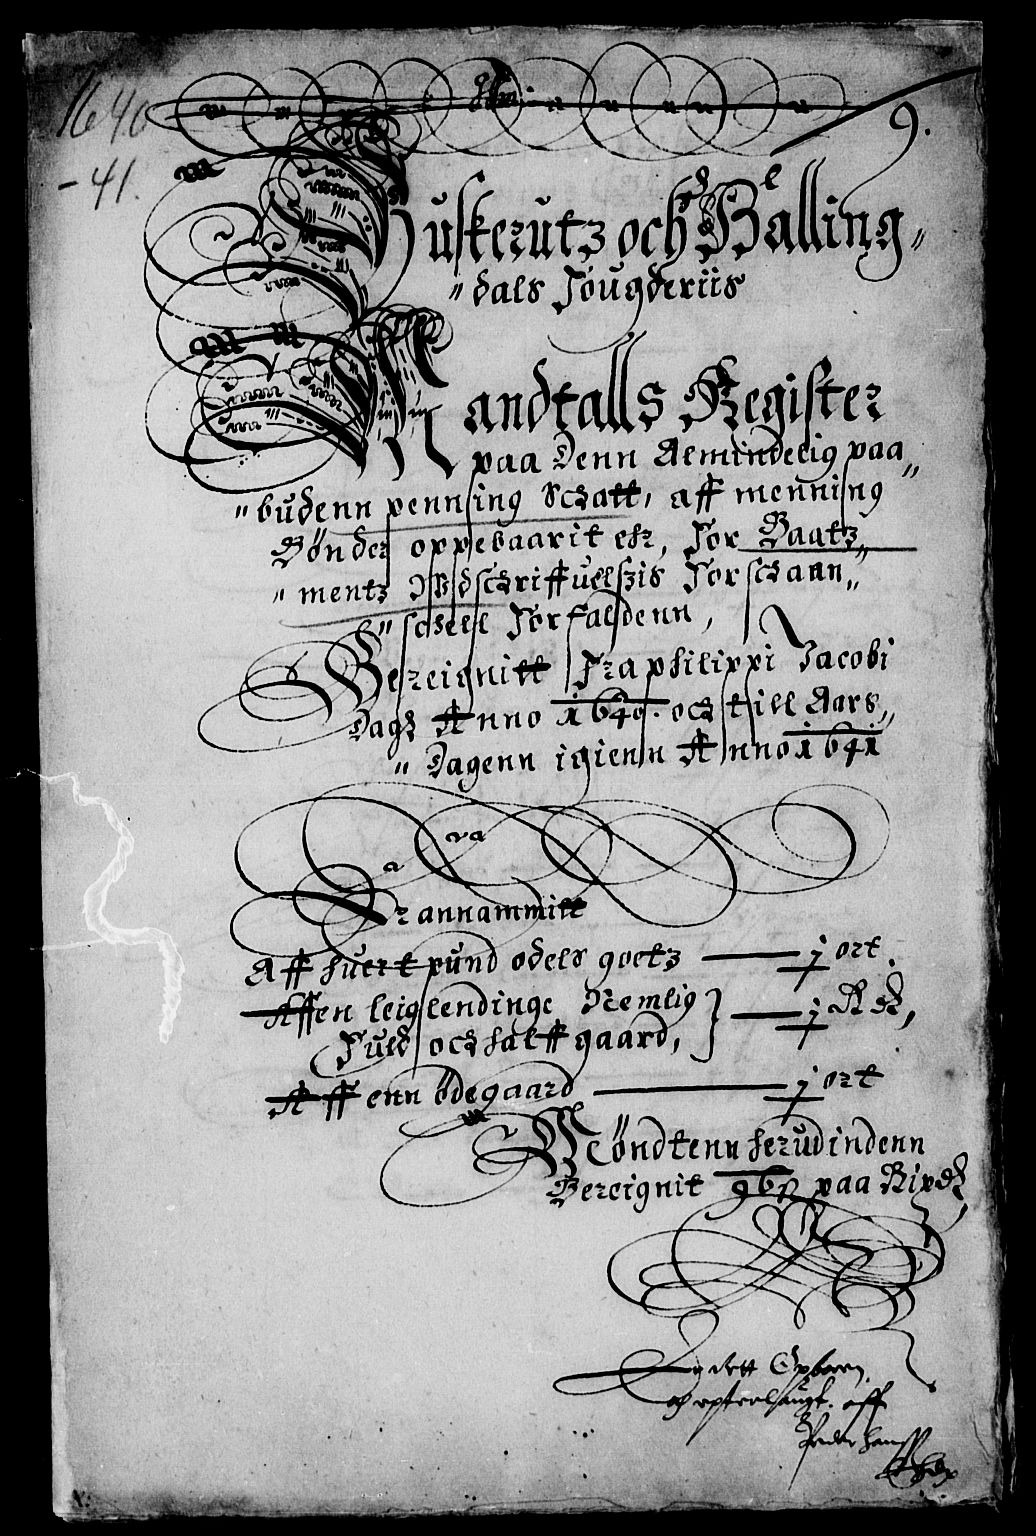 1640
-41.
9.
Buskerutz och Halling-
dals Fougderiis
Mandtalls Register
paa Denn Almindelig paa-
budenn penning Schatt, aff menning
Bønder oppebaarit ehr, For Baatz-
mentz Vdschriffuelszis Forschaan-
schell Forfalsdenn,
Bereignitt Fra philippi Jacobi
Dagz Anno 1640. och till Aars-
Dagenn igienn Anno 1641
Er annammitt
Aff huert pund odels goetz — j ort.
Affen leiglendinge Nemlig
Fuld och halff gaard, — j Rdr,
Aff enn ödegaard — j ort
Möndtenn herudindenn
Bereignit 96 s paa Rixdr,
Og dett Opboren
och epterlaugt. aff
Peder Hanss